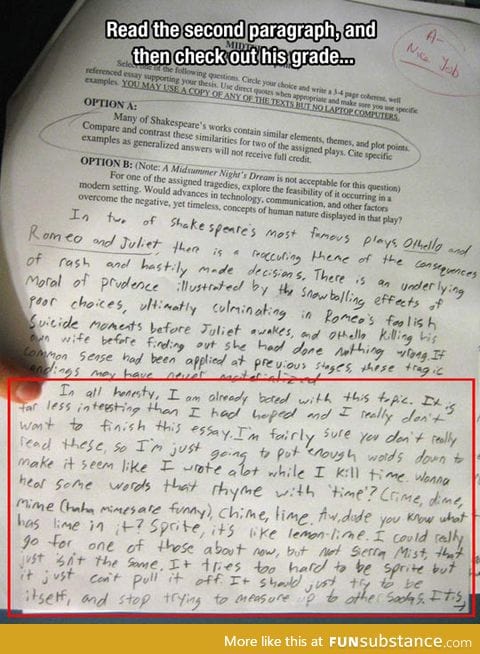 Read the second paragraph, and
then check out his grade...
A-
Nice Job
Select one of the following questions. Circle your choice and write a 3-4 page coherent, well
referenced essay supporting your thesis. Use direct quotes when appropriate and make sure you use specific
examples. YOU MAY USE A COPY OF ANY OF THE TEXTS BUT NO LAPTOP COMPUTERS.
OPTION A:
Many of Shakespeare's works contain similar elements, themes, and plot points.
Compare and contrast these similarities for two of the assigned plays. Cite specific
examples as generalized answers will not receive full credit.
OPTION B: (Note: A Midsummer Night's Dream is not acceptable for this question)
For one of the assigned tragedies, explore the feasibility of it occurring in a
modern setting. Would advances in technology, communication, and other factors
overcome the negative, yet timeless, concepts of human nature displayed in that play?
In two of Shakespeare's most famous plays, Othello and
Romeo and Juliet, there is a reoccuring theme of the consequences
of rash and hastily made decisions. There is an underlying
moral of prudence illustrated by the snowballing effects of
poor choices, ultimatly culminating in Romeo's foolish
suicide moments before Juliet awakes, and Othello killing his
own wife before finding out she had done nothing wrong. If
common sense had been applied at previous stages, these tragic
endings may have never materialized
In all honesty, I am already bored with this topic. It is
far less interesting than I had hoped and I really don't
want to finish this essay. I'm fairly sure you don't really
read these, so I'm just going to put enough words down to
make it seem like I wrote alot while I kill time. Wanna
hear some words that rhyme with 'time'? Crime, dime,
mime (haha mimes are funny), chime, lime. Aw, dude you know what
has lime in it? Sprite, it's like lemon-lime. I could really
go for one of those about now, but not Sierra Mist, that
just isn't the same. It tries too hard to be sprite but
it just can't pull it off. It should just try to be
itself, and stop trying to measure up to other sodas. It is
More like this at FUNsubstance.com